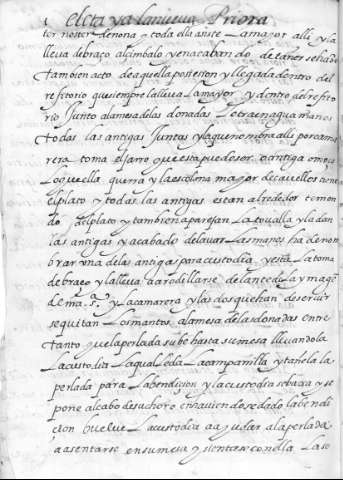 Eleta ya la nueva Priora
ter noster denona y toda ella asiste La mayor alli y la
lleva de braço al çimbalo y en acabando de tañer se ha de
tambien acto de aquella posesion y llegada dentro del
refitorio que siempre la lleva La mayor y dentro del refito
rio Junto a la mesa de las donadas Le traen agua manos
todas las antigas Juntas y la que nonbra alli por cama
rera toma el jarro que esta puede ser o antiga o moça
Lo que ella quera y la escolana major de cavelles tiene
el plato y todas las antigas estan alrededor tomon
do el plato y tambien aparejan La toualla y la dan
las antigas y acabado de lavar Las manos ha de non
brar una de las antigas por custodia y esta La toma
de braço y la lleva a arodillarse delante de la ymagē
de n.ra s.ra y camarera y las dos que han de servir
se quitan Los mantos a la mesa de las donadas entre
tanto que la perlada sube hasta su mesa llevandola
La custodia La qual le da La campanilla y tañela la
perlada para La bendiçion y la custodia se baxa y se
pone al cabo de su choro en haviendose dado la bendi
çion buelve La custodia a ajudar a la perlada
a asentarse en su mesa y sientase con ella La so